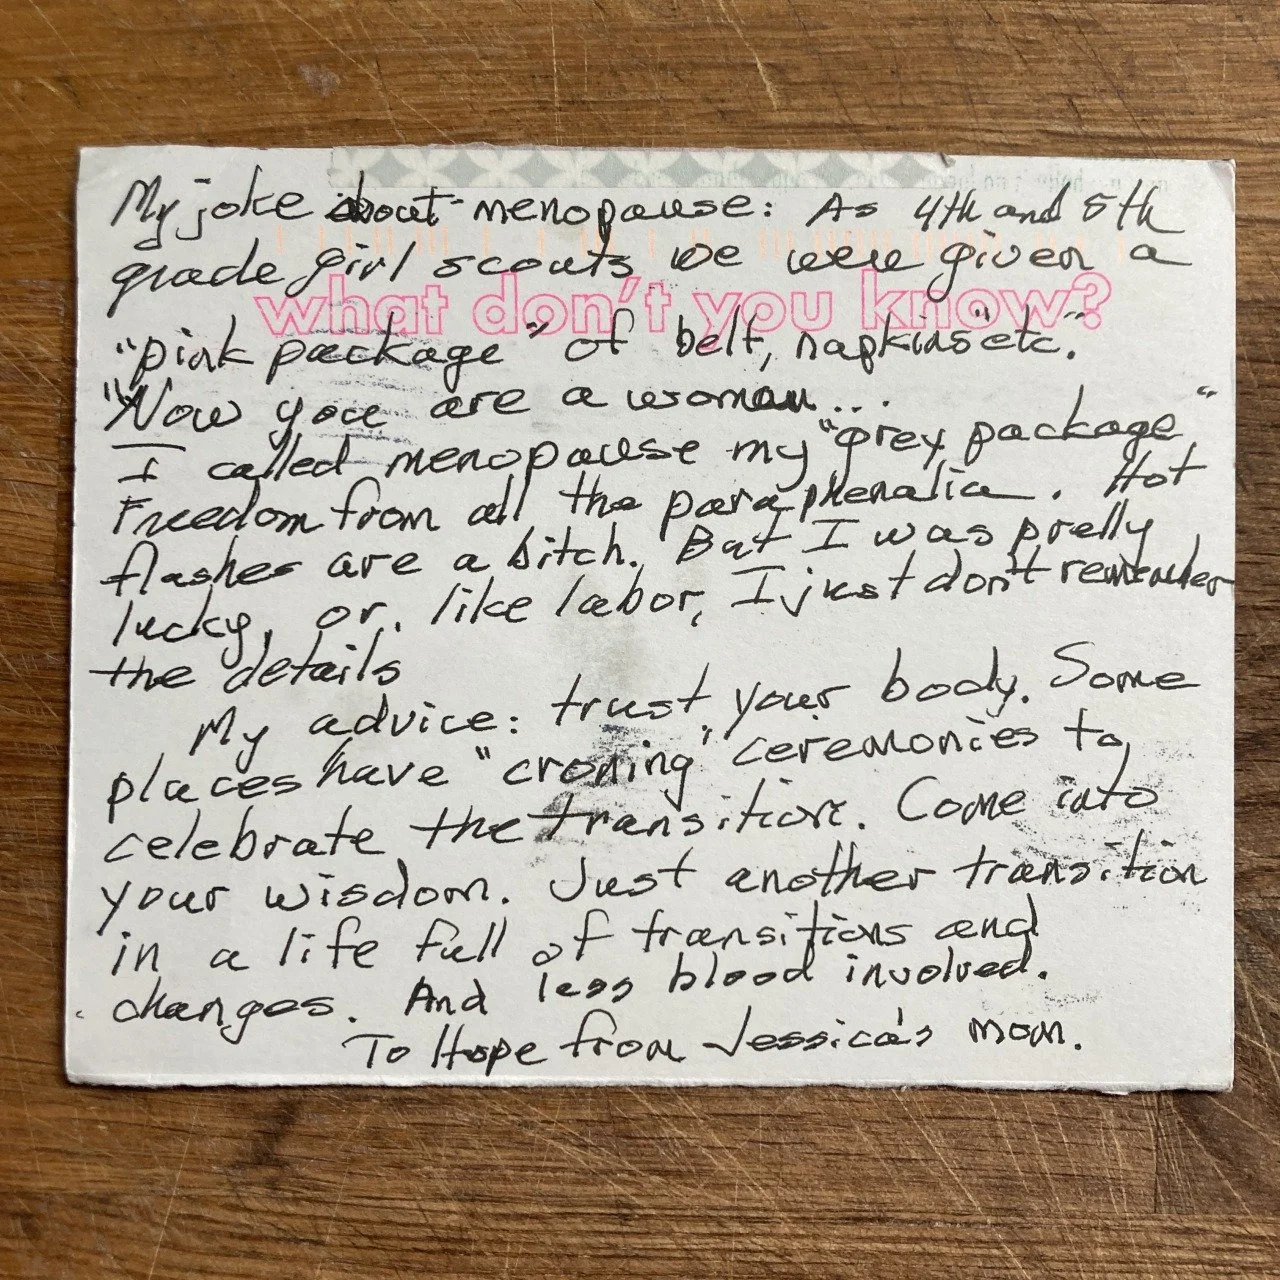 My joke about menopause: As 4th and 5th
grade girl scouts we were given a
what don't you know?
"pink package" of belt, napkins "etc."
"Now you are a woman...
I called menopause my "grey package"
Freedom from all the paraphenalia. Hot
flashes are a bitch. But I was pretty
lucky, or, like labor, I just don't remember
the details
My advice: trust your body. Some
places have "croning" ceremonies to
celebrate the transition. Come into
your wisdom. Just another transition
in a life full of transitions and
changes. And less blood involved.
To Hope from Jessica's mom.